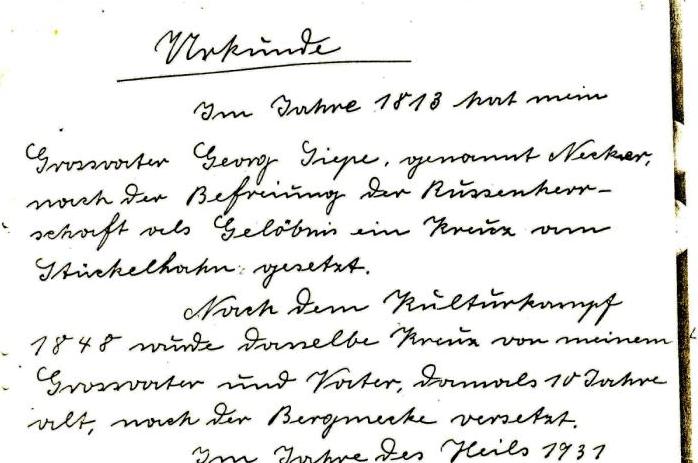 Urkunde
Im Jahre 1813 hat mein
Grossvater Georg Siepe, genannt Necker,
nach der Befreiung der Russenherr-
schaft als Gelöbnis ein Kreuz am
Stückelhahn gesetzt.
Nach dem Kulturkampf
1848 wurde dasselbe Kreuz von meinem
Grossvater und Vater, damals 10 Jahre
alt, nach der Bergmecke versetzt.
Im Jahre des Heils 1931